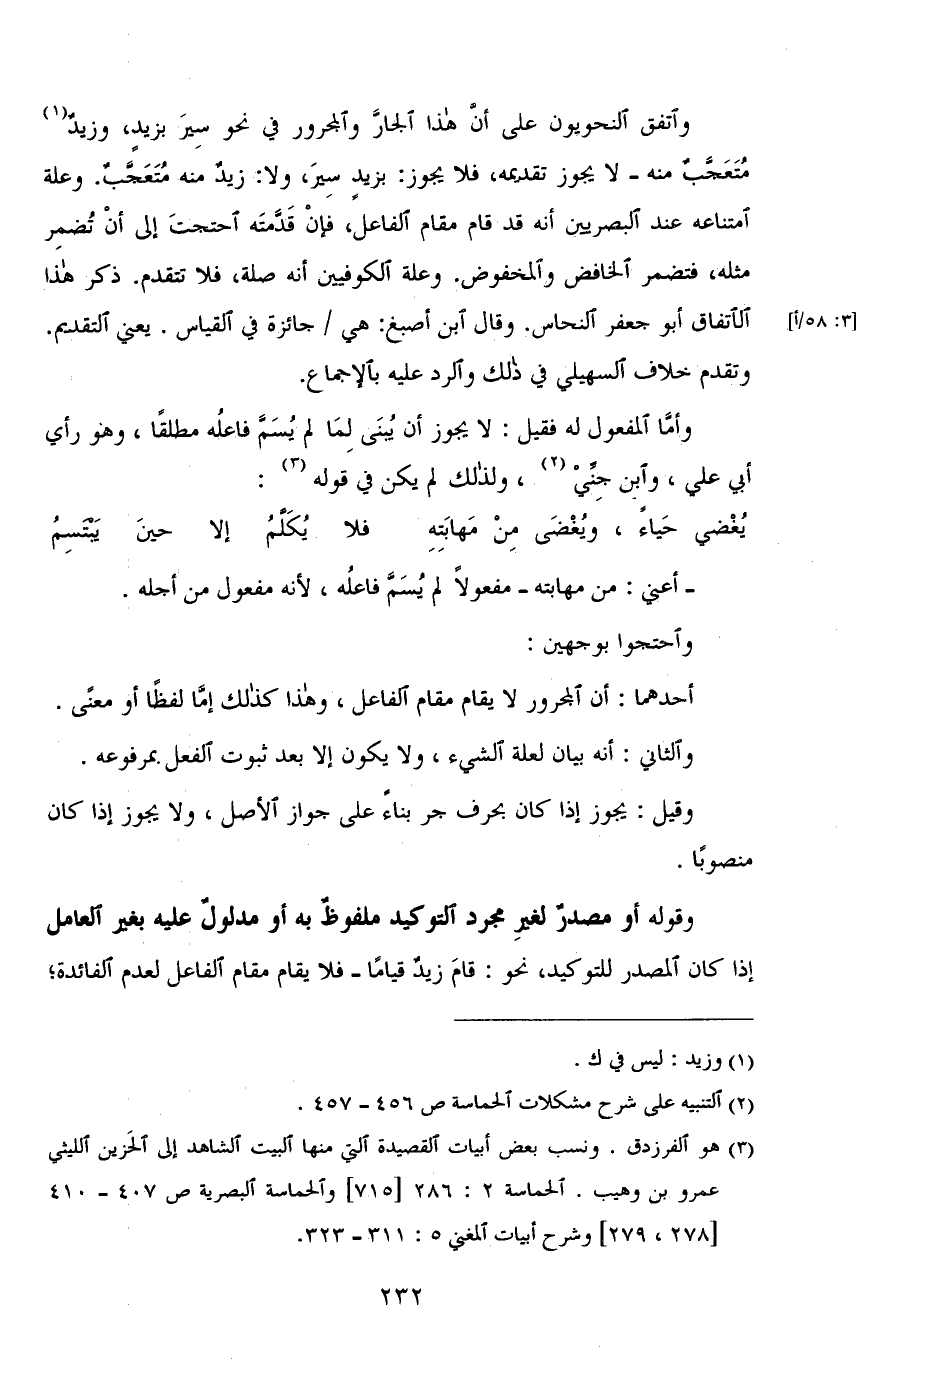 وٱتفق ٱلنحويون على أنَّ هٰذا ٱلجارَّ وٱلمجرور في نحو سِيرَ بزيدٍ، وزيدٌ(١)
مُتَعَجَّبٌ منه ـ لا يجوز تقديمه، فلا يجوز: بزيدٍ سِيرَ، ولا: زيدٌ منه مُتَعَجَّبٌ. وعلة
ٱمتناعه عند ٱلبصريين أنه قد قام مقام ٱلفاعل، فإنْ قَدَّمتَه ٱحتجتَ إلى أنْ تُضمِر
مثله، فتضمر ٱلخافض وٱلمخفوض. وعلة ٱلكوفيين أنه صلة، فلا تتقدم. ذكر هٰذا
ٱلٱتفاق أبو جعفر ٱلنحاس. وقال ٱبن أصبغ: هي / جائزة في ٱلقياس . يعني ٱلتقديم. [٣: ٥٨/أ]
وتقدم خلاف ٱلسهيلي في ذٰلك وٱلرد عليه بٱلإجماع.
وأمَّا ٱلمفعول له فقيل : لا يجوز أن يُبنَى لِمَا لم يُسَمَّ فاعلُه مطلقًا ، وهو رأي
أبي علي ، وٱبن جِنِّيْ(٢) ، ولذٰلك لم يكن في قوله(٣) :
يُغْضي حَياءً ، ويُغْضَى مِنْ مَهابَتِهِ فلا يُكَلَّمُ إلا حينَ يَبْتَسِمُ
ـ أعني : من مهابته ـ مفعولاً لم يُسَمَّ فاعلُه ، لأنه مفعول من أجله .
وٱحتجوا بوجهين :
أحدهما : أن ٱلمجرور لا يقام مقام ٱلفاعل ، وهٰذا كذٰلك إمَّا لفظًا أو معنًى .
وٱلثاني : أنه بيان لعلة ٱلشيء ، ولا يكون إلا بعد ثبوت ٱلفعل بمرفوعه .
وقيل : يجوز إذا كان بحرف جر بناءً على جواز ٱلأصل ، ولا يجوز إذا كان
منصوبًا .
وقوله أو مصدرٌ لغيرِ مجرد ٱلتوكيد ملفوظٌ به أو مدلولٌ عليه بغير ٱلعامل
إذا كان ٱلمصدر للتوكيد، نحو : قامَ زيدٌ قيامًا ـ فلا يقام مقام ٱلفاعل لعدم ٱلفائدة؛
(١) وزيد : ليس في ك .
(٢) ٱلتنبيه على شرح مشكلات ٱلحماسة ص ٤٥٦ ـ ٤٥٧ .
(٣) هو ٱلفرزدق . ونسب بعض أبيات ٱلقصيدة ٱلتي منها ٱلبيت ٱلشاهد إلى ٱلحَزين ٱلليثي
عمرو بن وهيب . ٱلحماسة ٢ : ٢٨٦ [٧١٥] وٱلحماسة ٱلبصرية ص ٤٠٧ ـ ٤١٠
[٢٧٨ ، ٢٧٩] وشرح أبيات ٱلمغني ٥ : ٣١١ ـ ٣٢٣.
٢٣٢